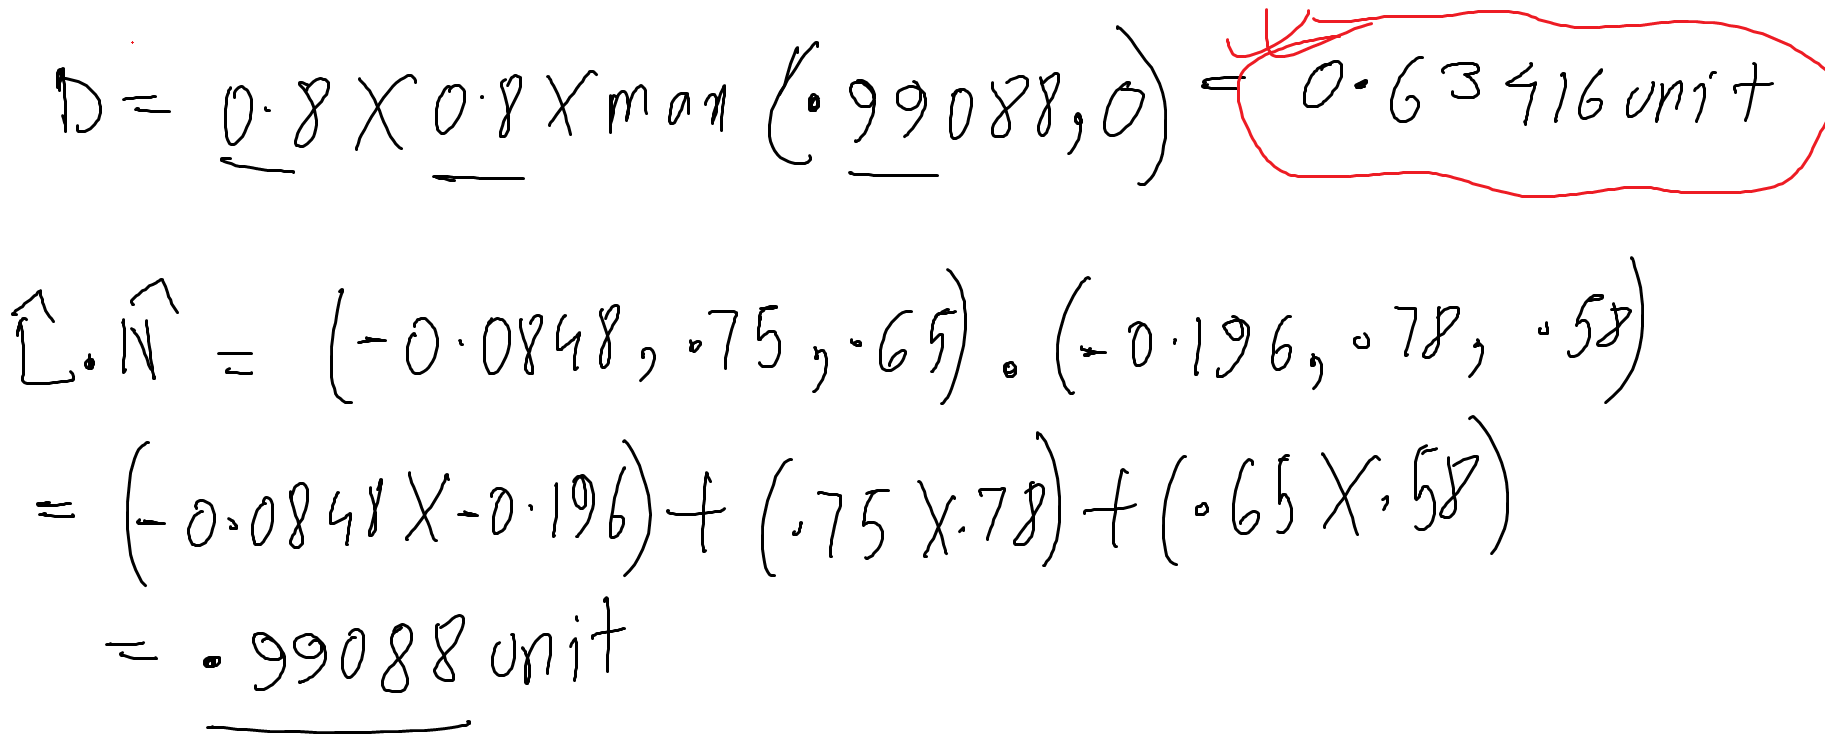 D = 0.8 X 0.8 X max (.99088, 0) = 0.63416 unit
L̂.N̂ = (-0.0848, .75, .65) . (-0.196, .78, .58)
= (-0.0848 X -0.196) + (.75 X .78) + (.65 X .58)
= .99088 unit